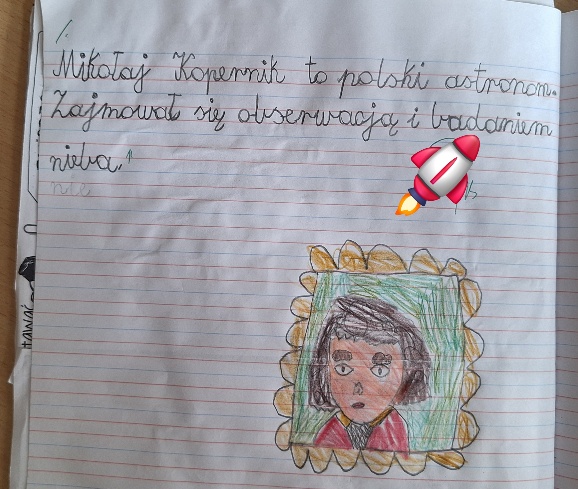 Mikołaj Kopernik to polski astronom.
Zajmował się obserwacją i badaniem
nieba.
nie